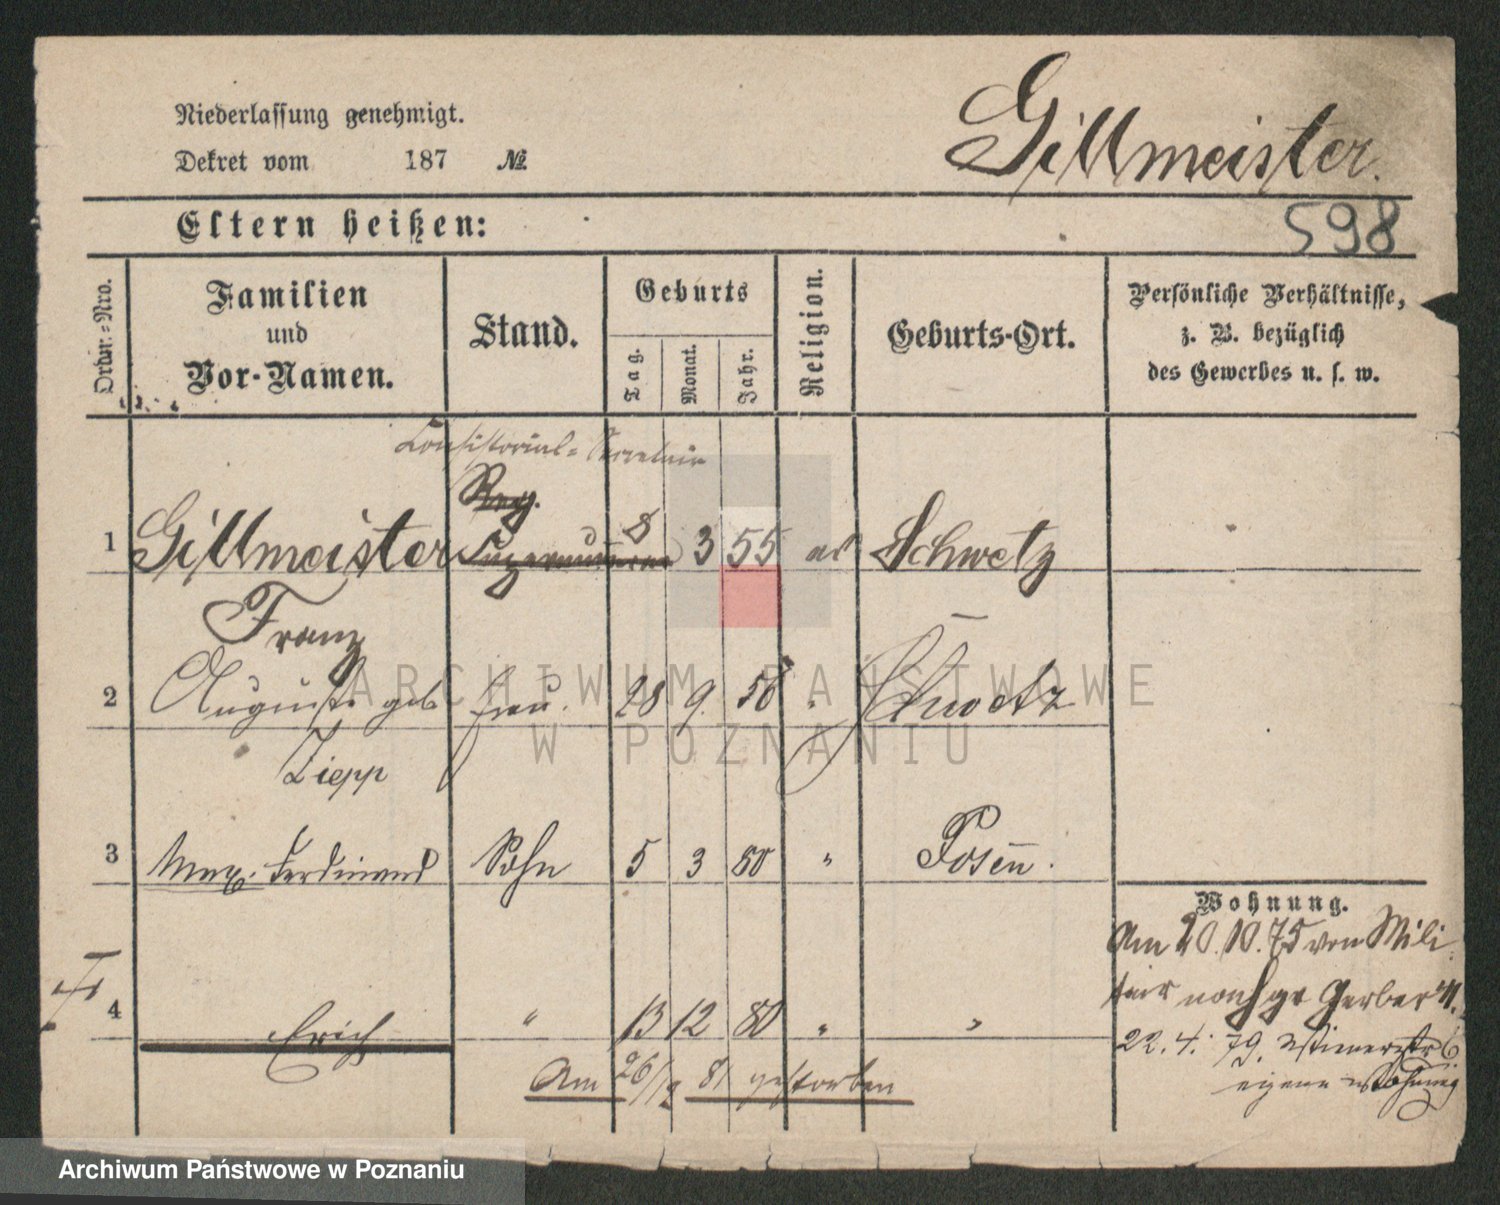 Niederlassung genehmigt.
Dekret vom 187 №
Gillmeister.
598
Eltern heißen:
Ordn.-Nro.
Familien
und
Vor-Namen.
Stand.
Geburts
Tag.
Monat.
Jahr.
Religion.
Geburts-Ort.
Persönliche Verhältnisse,
z. B. bezüglich
des Gewerbes u. s. w.
Consistorial-Secretair
Reg.
1 Gillmeister Supernumerar 8 3 55 ev Schwetz
Franz
2 Auguste geb Frau. 28 9. 56 " Schwetz
Ziepp
3 Max Ferdinand Sohn 5 3 80 " Posen.
4 Erich " 13 12 80 " "
Am 26/12 81 gestorben
Wohnung.
Am 20.10.75 von Mili
tair nach gr Gerber
22.4. 79.
eigene Wohnung
ARCHIWUM PAŃSTWOWE
W POZNANIU
Archiwum Państwowe w Poznaniu